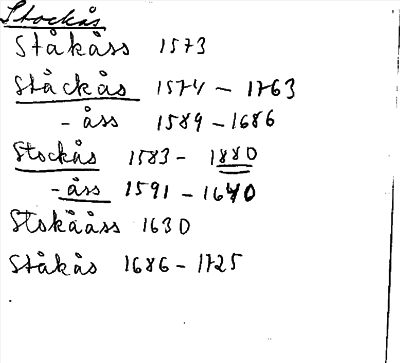 Stockås
Ståkåss 1573
Ståckås 1574 - 1763
- åss 1589 - 1686
Stockås 1583 - 1880
- åss 1591 - 1640
Stokååss 1630
Ståkås 1686 - 1725